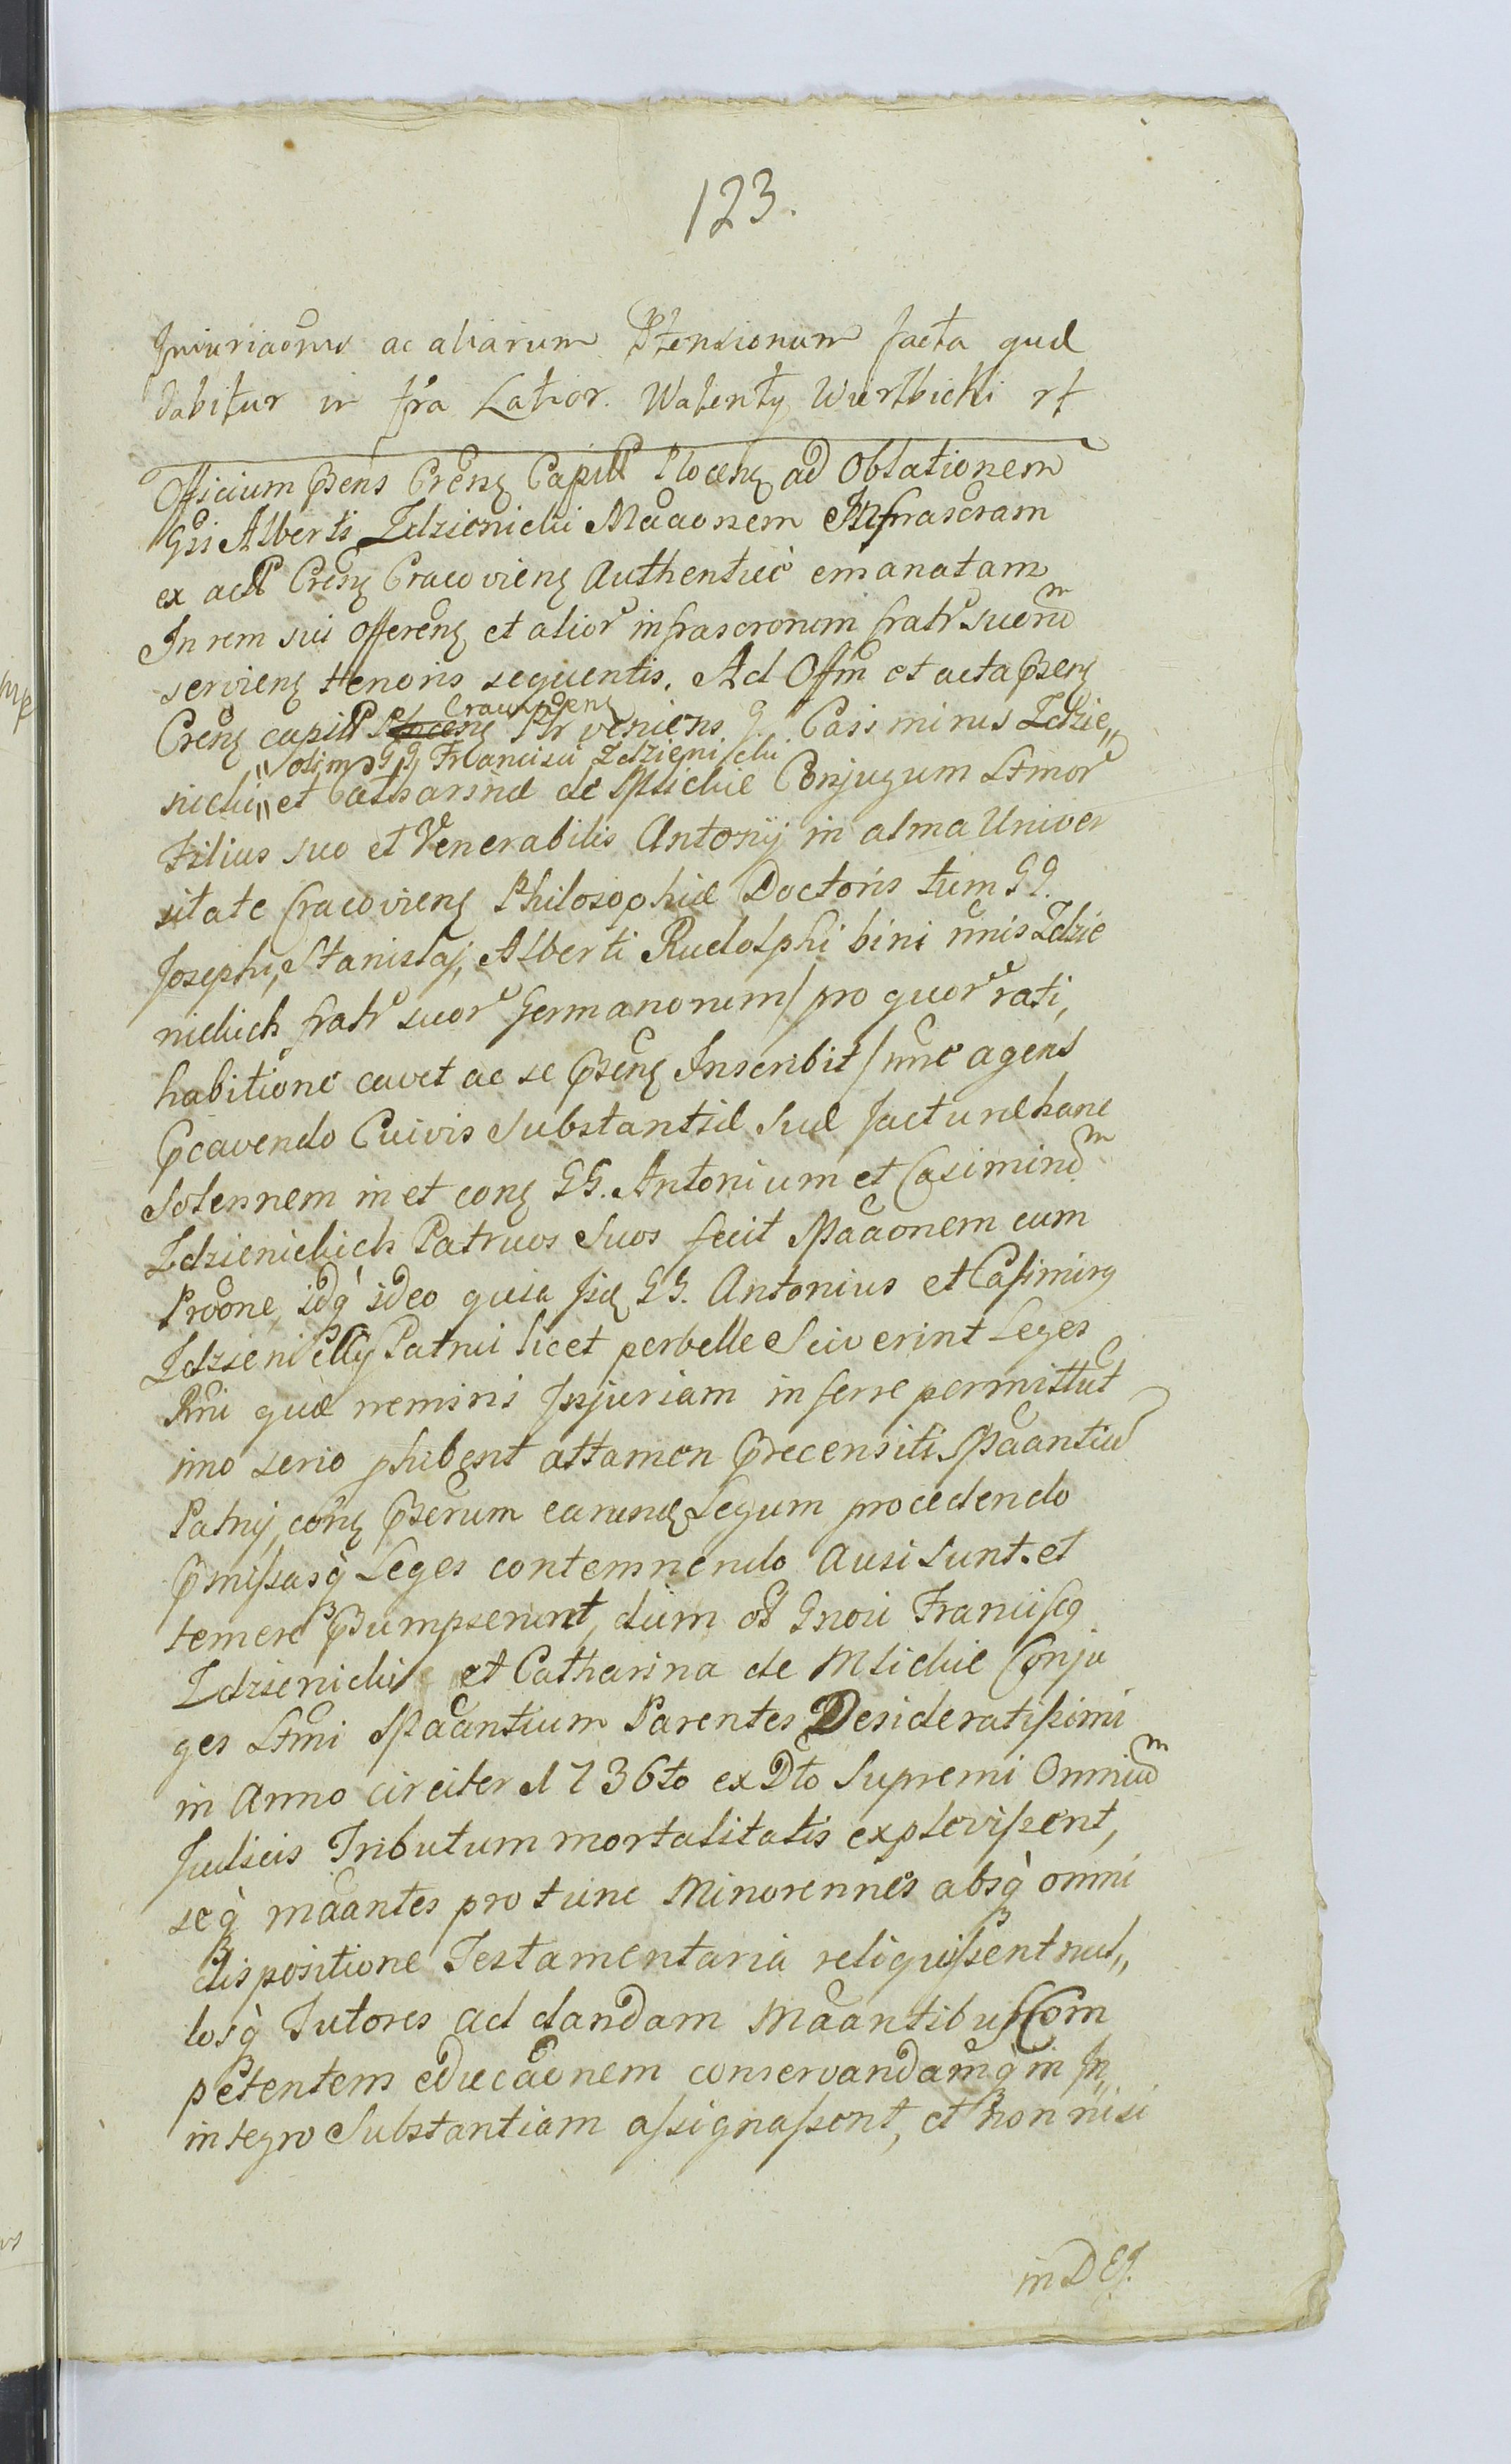 123.
Iniuriaonis ac aliarum Ptensionum facta quæ
dabitur in fra Latior. Walenty Wierzbicki rt
Officium Psens Crense Capitle Plocense ad Oblationem
Gsi Alberti Zdzienicki Maaonem Infrascram
ex actis Crens Cracoviens Authentice emanatam
In rem sui Offerens et alior infrascronum fratr suorum
serviens tenoris sequentis. Ad Offm et acta Psens
Crens capitl Cracoviens Plr veniens G. Casimirus Zdzie„
„olim GG Francisci Zdzienicki
nicki„ et Catharinæ de Mlickie Conjugum Ltmor
Filius suo et Venerabilis Antonij in alma Univer
sitate Cracoviens Philosophiæ Doctoris tum GG.
Josephi, Stanislaj, Alberti Rudolphi bini nnis Zdzie
nickich fratr suor Germanorum / pro quor rati,
habitione cavet ac se Psens Inscribit / nnē agens
Pcavendo Cuivis Substantiæ suæ facturæ hanc
Solennem in et cong GG. Antonium et Casimirum
Zdzienickich Patruos suos fecit Maaonem cum
Prōone, idq ideo quia Psi GG. Antonius et Casimirus
Zdzieniccy Patrui licet perbelle sciverint Leges
Rni quæ nemini Injuriam inferre permittut
imo serio phibent attamen Precensiti Maantiu
Patruj, cong Pserum earund Legum procedendo
Pmissasq Leges contemnendo ausi sunt et
temere Psumpserunt, dum olim Gnoii Franciscus
Zdzienicki et Catharina de Mlickie Conju
ges Ltmi Maantium Parentes Desideratissimi
in Anno circiter 1736to ex Dto Supremi Omnium
Judicis Tributum mortalitatis explevissent,
seq maantes pro tunc Minorennes absq omni
dispositione Testamentaria reliquissent nul„
losq Tutores ad dandam Maantibus Com
petentem educāonem conservandamq in In„
integro Substantiam assignassent, et non nisi